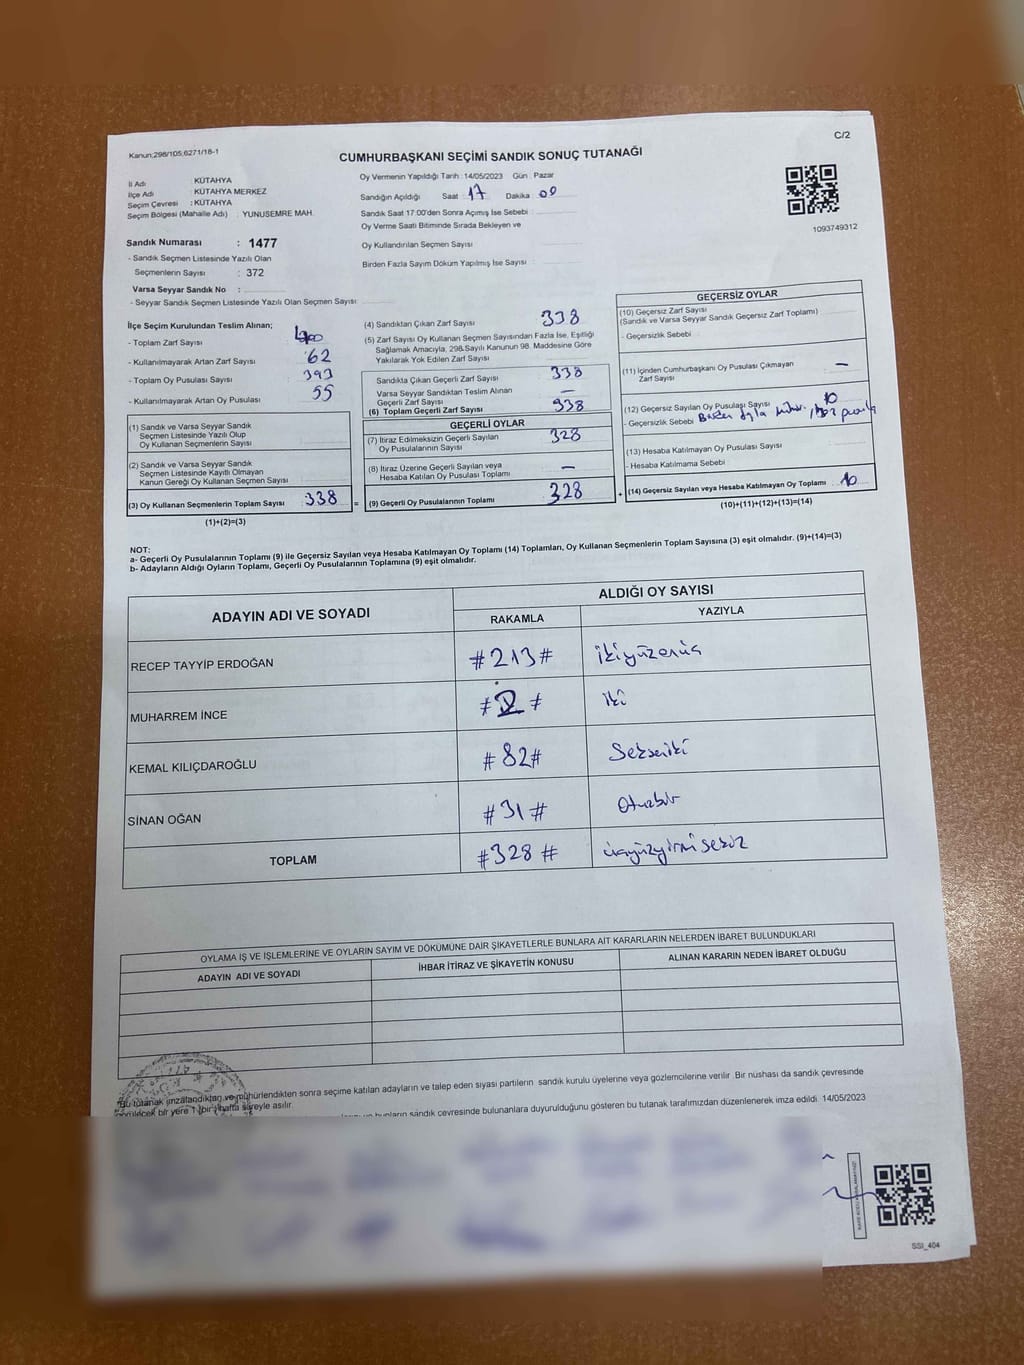 C/2
Kanun;298/105;6271/18-1
CUMHURBAŞKANI SEÇİMİ SANDIK SONUÇ TUTANAĞI
İl Adı : KÜTAHYA
İlçe Adı : KÜTAHYA MERKEZ
Seçim Çevresi : KÜTAHYA
Seçim Bölgesi (Mahalle Adı) : YUNUSEMRE MAH.
Sandık Numarası : 1477
- Sandık Seçmen Listesinde Yazılı Olan
Seçmenlerin Sayısı : 372
Varsa Seyyar Sandık No :
- Seyyar Sandık Seçmen Listesinde Yazılı Olan Seçmen Sayısı :
Oy Vermenin Yapıldığı Tarih : 14/05/2023 Gün : Pazar
Sandığın Açıldığı Saat 17 Dakika 00
Sandık Saat 17:00'den Sonra Açımış İse Sebebi :
Oy Verme Saati Bitiminde Sırada Bekleyen ve
Oy Kullandırılan Seçmen Sayısı
Birden Fazla Sayım Döküm Yapılmış İse Sayısı :
1093749312
İlçe Seçim Kurulundan Teslim Alınan;
- Toplam Zarf Sayısı : 400
- Kullanılmayarak Artan Zarf Sayısı : 62
- Toplam Oy Pusulası Sayısı : 393
- Kullanılmayarak Artan Oy Pusulası : 55
(1) Sandık ve Varsa Seyyar Sandık
Seçmen Listesinde Yazılı Olup
Oy Kullanan Seçmenlerin Sayısı
(2) Sandık ve Varsa Seyyar Sandık
Seçmen Listesinde Kayıtlı Olmayan
Kanun Gereği Oy Kullanan Seçmen Sayısı
(3) Oy Kullanan Seçmenlerin Toplam Sayısı 338 =
(1)+(2)=(3)
(4) Sandıktan Çıkan Zarf Sayısı 338
(5) Zarf Sayısı Oy Kullanan Seçmen Sayısından Fazla İse, Eşitliği
Sağlamak Amacıyla, 298 Sayılı Kanunun 98. Maddesine Göre
Yakılarak Yok Edilen Zarf Sayısı
Sandıkta Çıkan Geçerli Zarf Sayısı 338
Varsa Seyyar Sandıktan Teslim Alınan
Geçerli Zarf Sayısı —
(6) Toplam Geçerli Zarf Sayısı 338
GEÇERLİ OYLAR
(7) İtiraz Edilmeksizin Geçerli Sayılan
Oy Pusulalarının Sayısı 328
(8) İtiraz Üzerine Geçerli Sayılan veya
Hesaba Katılan Oy Pusulası Toplamı —
(9) Geçerli Oy Pusulalarının Toplamı 328 +
GEÇERSİZ OYLAR
(10) Geçersiz Zarf Sayısı
(Sandık ve Varsa Seyyar Sandık Geçersiz Zarf Toplamı)
- Geçersizlik Sebebi
(11) İçinden Cumhurbaşkanı Oy Pusulası Çıkmayan
Zarf Sayısı —
(12) Geçersiz Sayılan Oy Pusulası Sayısı 10
- Geçersizlik Sebebi
(13) Hesaba Katılmayan Oy Pusulası Sayısı
- Hesaba Katılmama Sebebi
(14) Geçersiz Sayılan veya Hesaba Katılmayan Oy Toplamı 10
(10)+(11)+(12)+(13)=(14)
NOT:
a- Geçerli Oy Pusulalarının Toplamı (9) ile Geçersiz Sayılan veya Hesaba Katılmayan Oy Toplamı (14) Toplamları, Oy Kullanan Seçmenlerin Toplam Sayısına (3) eşit olmalıdır. (9)+(14)=(3)
b- Adayların Aldığı Oyların Toplamı, Geçerli Oy Pusulalarının Toplamına (9) eşit olmalıdır.
ADAYIN ADI VE SOYADI ALDIĞI OY SAYISI
RAKAMLA YAZIYLA
RECEP TAYYİP ERDOĞAN #213# ikiyüzonüç
MUHARREM İNCE #2# iki
KEMAL KILIÇDAROĞLU #82# Sekseniki
SİNAN OĞAN #31# Otuzbir
TOPLAM #328# üçyüzyirmisekiz
OYLAMA İŞ VE İŞLEMLERİNE VE OYLARIN SAYIM VE DÖKÜMÜNE DAİR ŞİKAYETLERLE BUNLARA AİT KARARLARIN NELERDEN İBARET BULUNDUKLARI
ADAYIN ADI VE SOYADI İHBAR İTİRAZ VE ŞİKAYETİN KONUSU ALINAN KARARIN NEDEN İBARET OLDUĞU
*Bu tutanak imzalandıktan ve mühürlendikten sonra seçime katılan adayların ve talep eden siyasi partilerin sandık kurulu üyelerine veya gözlemcilerine verilir. Bir nüshası da sandık çevresinde
görülecek bir yere 1 (bir) hafta süreyle asılır.
ve bunların sandık çevresinde bulunanlara duyurulduğunu gösteren bu tutanak tarafımızdan düzenlenerek imza edildi. 14/05/2023
SSI_404